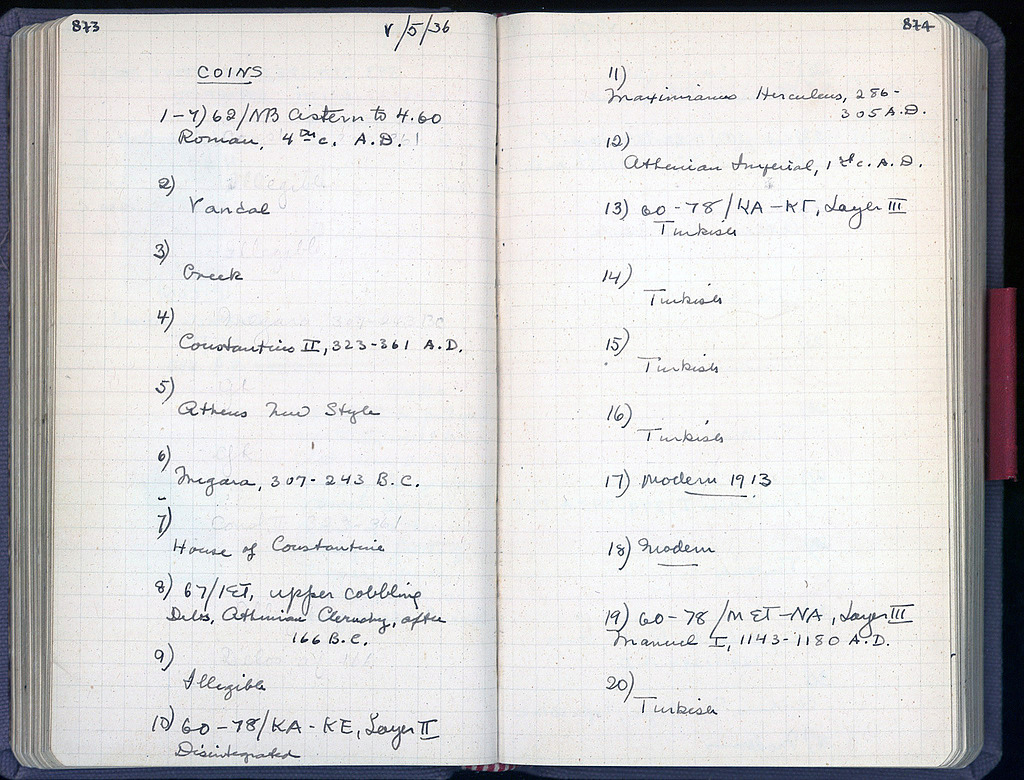 873
V/5/36
COINS
1-7) 62/NB Cistern to 4.60
Roman, 4th c. A.D.
2)
Vandal
3)
Greek
4)
Constantius II, 323-361 A.D.
5)
Athens New Style
6)
Megara, 307-243 B.C.
7)
House of Constantine
8) 67/IET, upper cobbling
Delos, Athenian Cleruchy, after
166 B.C.
9)
Illegible
10) 60-78/KA-KE, Layer II
Disintegrated
874
11)
Maximianus Herculeus, 286-
305 A.D.
12)
Athenian Imperial, 1st c. A.D.
13) 60-78/KA-KΓ, Layer III
Turkish
14)
Turkish
15)
Turkish
16)
Turkish
17) Modern 1913
18) Modern
19) 60-78/M ET-NA, Layer III
Manuel I, 1143-1180 A.D.
20)
Turkish